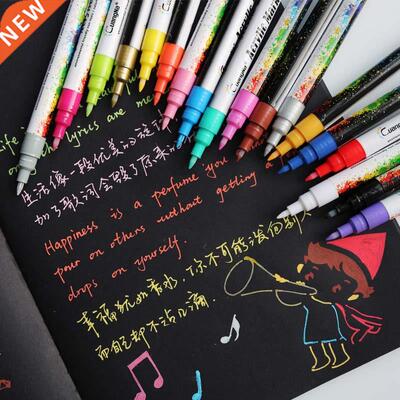 NEW
Guangna
Acrylic Marker
Life is
the lyrics are me
生活像一段优美的旋律
加了歌词会变了原来
Happiness is a perfume you
pour on others without getting
drops on yourself.
幸福犹如香水，你不可能泼向别人
而自己却不沾几滴